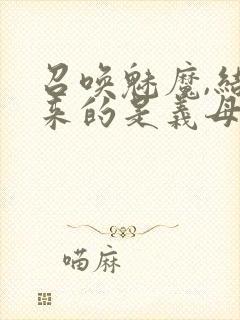 召唤魅魔,结
来的是義母
喵麻